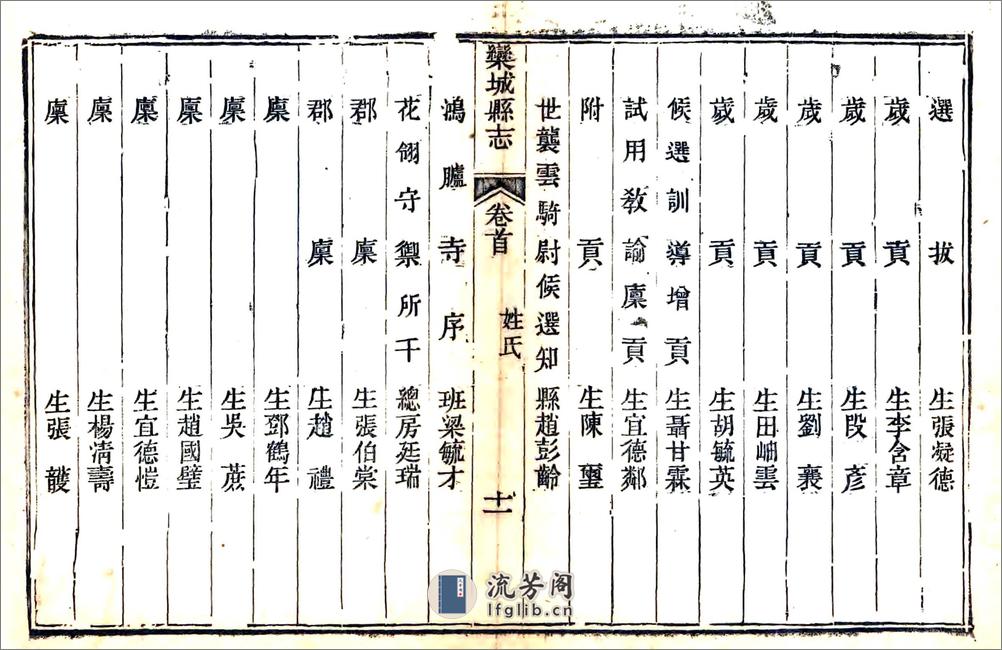 選拔貢生張凝德
歲貢生李含章
歲貢生段彥
歲貢生劉襄
歲貢生田岫雲
歲貢生胡毓英
候選訓導增貢生聶甘霖
試用教諭廩貢生宜德鄰
附貢生陳璽
世襲雲騎尉候選知縣趙彭齡
欒城縣志
卷首
姓氏
十一
鴻臚寺序班梁毓才
花翎守禦所千總房廷瑞
郡廩生張伯棠
郡廩生趙禮
廩生鄧鶴年
廩生吳蔗
廩生趙國璧
廩生宜德愷
廩生楊清壽
廩生張頀
流芳阁
lfglib.cn